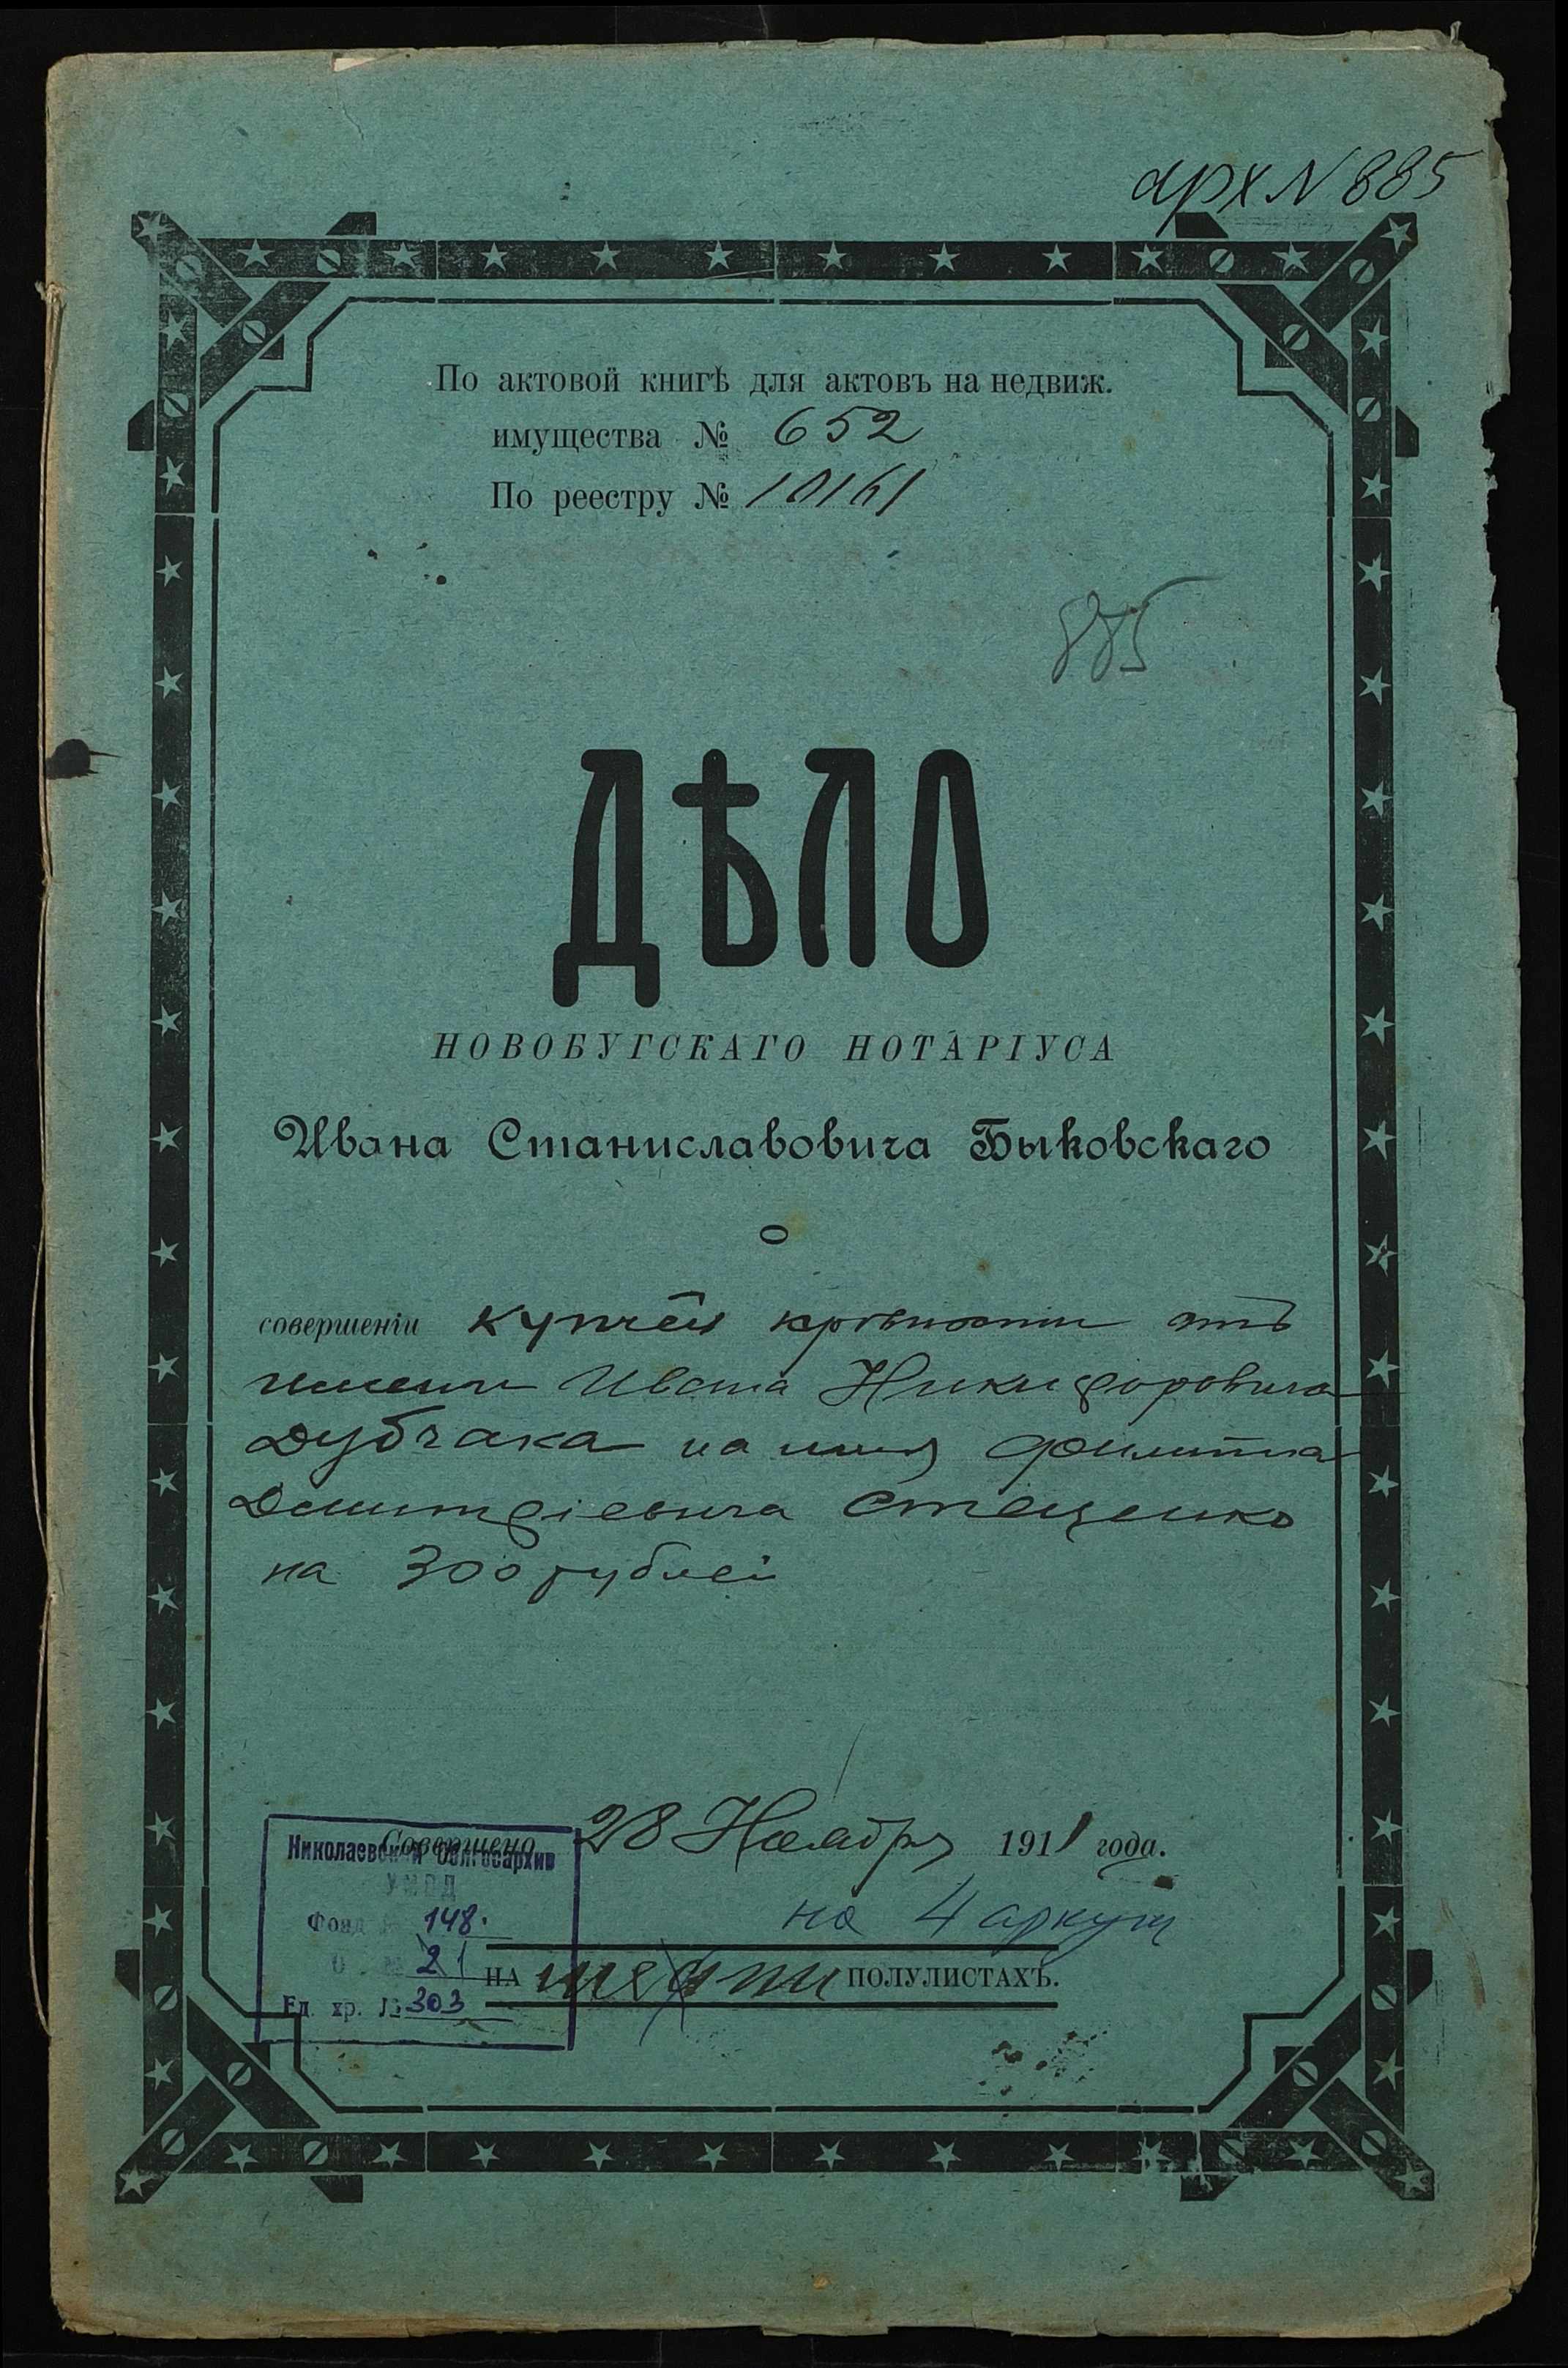 арх N 885
По актовой книгѣ для актовъ на недвиж.
имущества № 652
По реестру № 10161
885
ДѢЛО
НОВОБУГСКАГО НОТАРІУСА
Ивана Станиславовича Быковскаго
о
совершеніи купчей крѣпости отъ
имени Ивана Никифоровича
Дубчака на имя Филиппа
Дмитріевича Стеценко
на 300 рублей
Совершено 28 Ноября 1911 года.
на 4 аркуш
НА шести ПОЛУЛИСТАХЪ.
Николаевский Облгосархив
УМВД
Фонд № 148.
О № 21
Ед. хр. № 303